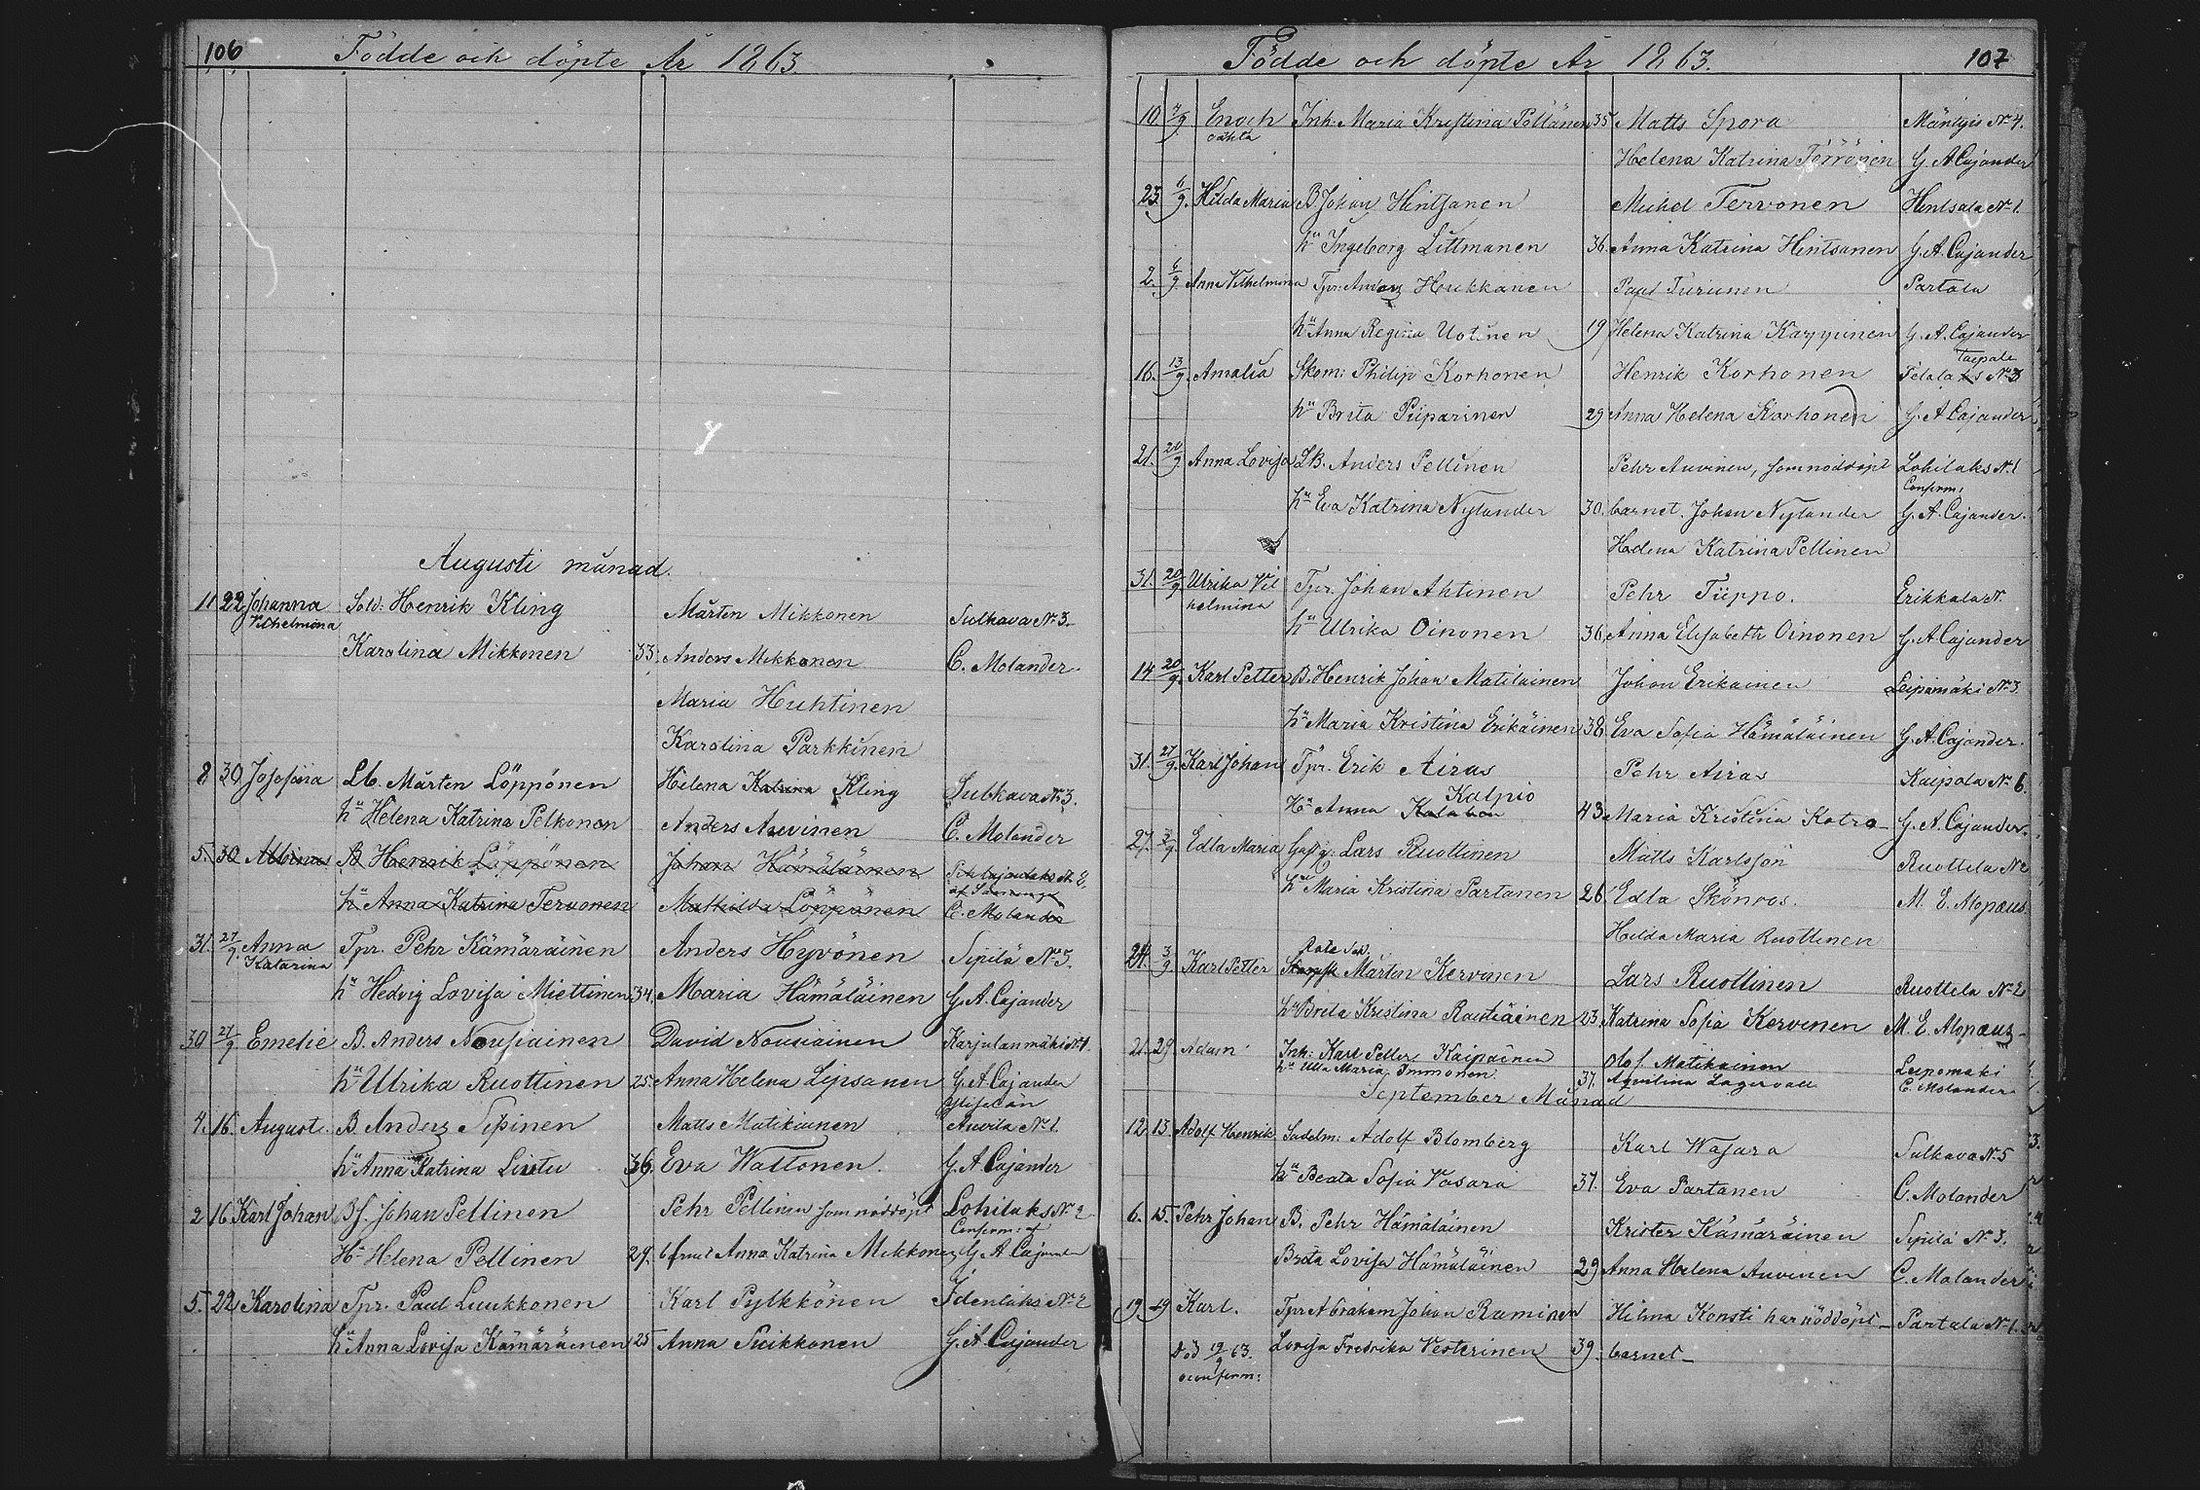 106 Födde och döpte År 1863.
Augusti månad.
11 22 Johanna Sold: Henrik Kling Mårten Mikkonen Sulkava No 3.
Vilhelmina
Karolina Mikkonen 33. Anders Mikkonen C. Molander
Maria Huhtinen
Karolina Parkkinen
8 30 Josefina Lb. Mårten Löppönen Helena Katrina Kling Sulkava No 3.
hu Helena Katrina Pelkonen Anders Auvinen C. Molander
5. 30 Albina B Henrik Löppönen Johan Hämäläinen
hu Anna Katrina Tervonen Mathilda Löppönen C. Molander
31. 27/9. Anna Tpr. Pehr Kämäräinen Anders Hyvönen Sipilä No 3.
Katarina
hu Hedvig Lovisa Miettinen 34. Maria Hämäläinen G. A. Cajander
30 27/9 Emelie B. Anders Nousiainen David Nousiainen Karjulanmäki No 1.
hu Ulrika Ruottinen 25. Anna Helena Lipsanen G. A. Cajander
4. 16. August. B. Anders Sipinen Matts Matikainen Auvila No 1.
hu Anna Katrina Liutu 36. Eva Wattonen. G. A. Cajander
2 16 Karl Johan Bs. Johan Pellinen Pehr Pellinen som nöddöpt Lohilaks No 2
Confirm: af
Hu Helena Pellinen 29. barnet Anna Katrina Mikkonen G. A. Cajander
5. 22 Karolina Tpr. Paul Luukkonen Karl Pylkkönen Idenlaks No 2
hu Anna Lovisa Kämäräinen 25 Anna Suikkonen G. A. Cajander
Födde och döpte År 1863. 107
10. Enoch Inh: Maria Kristina Pöllänen 35 Matts Spora Mäntyis No 4.
oäkta
Helena Katrina Törrönen G. A. Cajander
23. 6/9. Hilda Maria B Johan Hintsanen Michel Tervonen Hintsala No 1.
hu Ingeborg Littmanen 36. Anna Katrina Hintsanen G. A. Cajander
2. 6/9 Anna Vilhelmina Tpr: Anders Houkkanen Paul Turunen Partala
hu Anna Regina Uotinen 19 Helena Katrina Karppinen G. A. Cajander
Taipale
16. 13/9. Amalia Skom: Philip Korhonen Henrik Korhonen No 3
hu Brita Piiparinen 29 Anna Helena Korhonen G. A. Cajander
21. 20/9 Anna Lovisa LB. Anders Pellinen Pehr Auvinen, som nöddöpt Lohilaks No 1
Confirm:
hu Eva Katrina Nylander 30. barnet. Johan Nylander G. A. Cajander.
Helena Katrina Pellinen
31. 20/9 Ulrika Vil Tpr. Johan Ahtinen Pehr Tiippo. Erikkala No
helmina
hu Ulrika Oinonen 36. Anna Elisabeth Oinonen G. A. Cajander
14. 20/9. Karl Petter B. Henrik Johan Matilainen Johan Erikainen Leipämäki No 3
hu Maria Kristina Erikäinen 38. Eva Sofia Hämäläinen G. A. Cajander.
31. 27/9. Karl Johan Tpr. Erik Airas Pehr Airas Kaipola No 6.
Kalpio
Hu Anna 43. Maria Kristina Kotro G. A. Cajander.
27. 3/9. Edla Maria Lars Ruottinen Matts Karlsson Ruottela No 2
hu Maria Kristina Partanen 26. Edla Skönros. M. E. Alopæus
Hilda Maria Ruottinen
24. 3/9. Karl Petter Mårten Kervinen Lars Ruottinen Ruottela No 2
hu Brita Kristina Rautiainen 23. Katrina Sofia Kervinen M. E. Alopæus
21. 29 Adam Inh: Karl Petter Kaipainen Olof Matikainen Leipomäki
hu Ulla Maria Immonen. 37. Aqvilina Lagervall C. Molander
September Månad
12. 13. Adolf Henrik Sadelm: Adolf Blomberg Karl Wasara Sulkava No 5
hu Beata Sofia Vasara 37. Eva Partanen C. Molander
6. 15. Pehr Johan B. Pehr Hämäläinen Krister Kämäräinen Sipilä No 3.
Brita Lovisa Hämäläinen 29 Anna Helena Auvinen C. Molander
19. 19 Karl. Tpr Abraham Johan Raminen Hilma Konsti har nöddöpt Partala No 1.
död 19/9 63. Lovisa Fredrika Vesterinen 39. barnet
oconfirm: